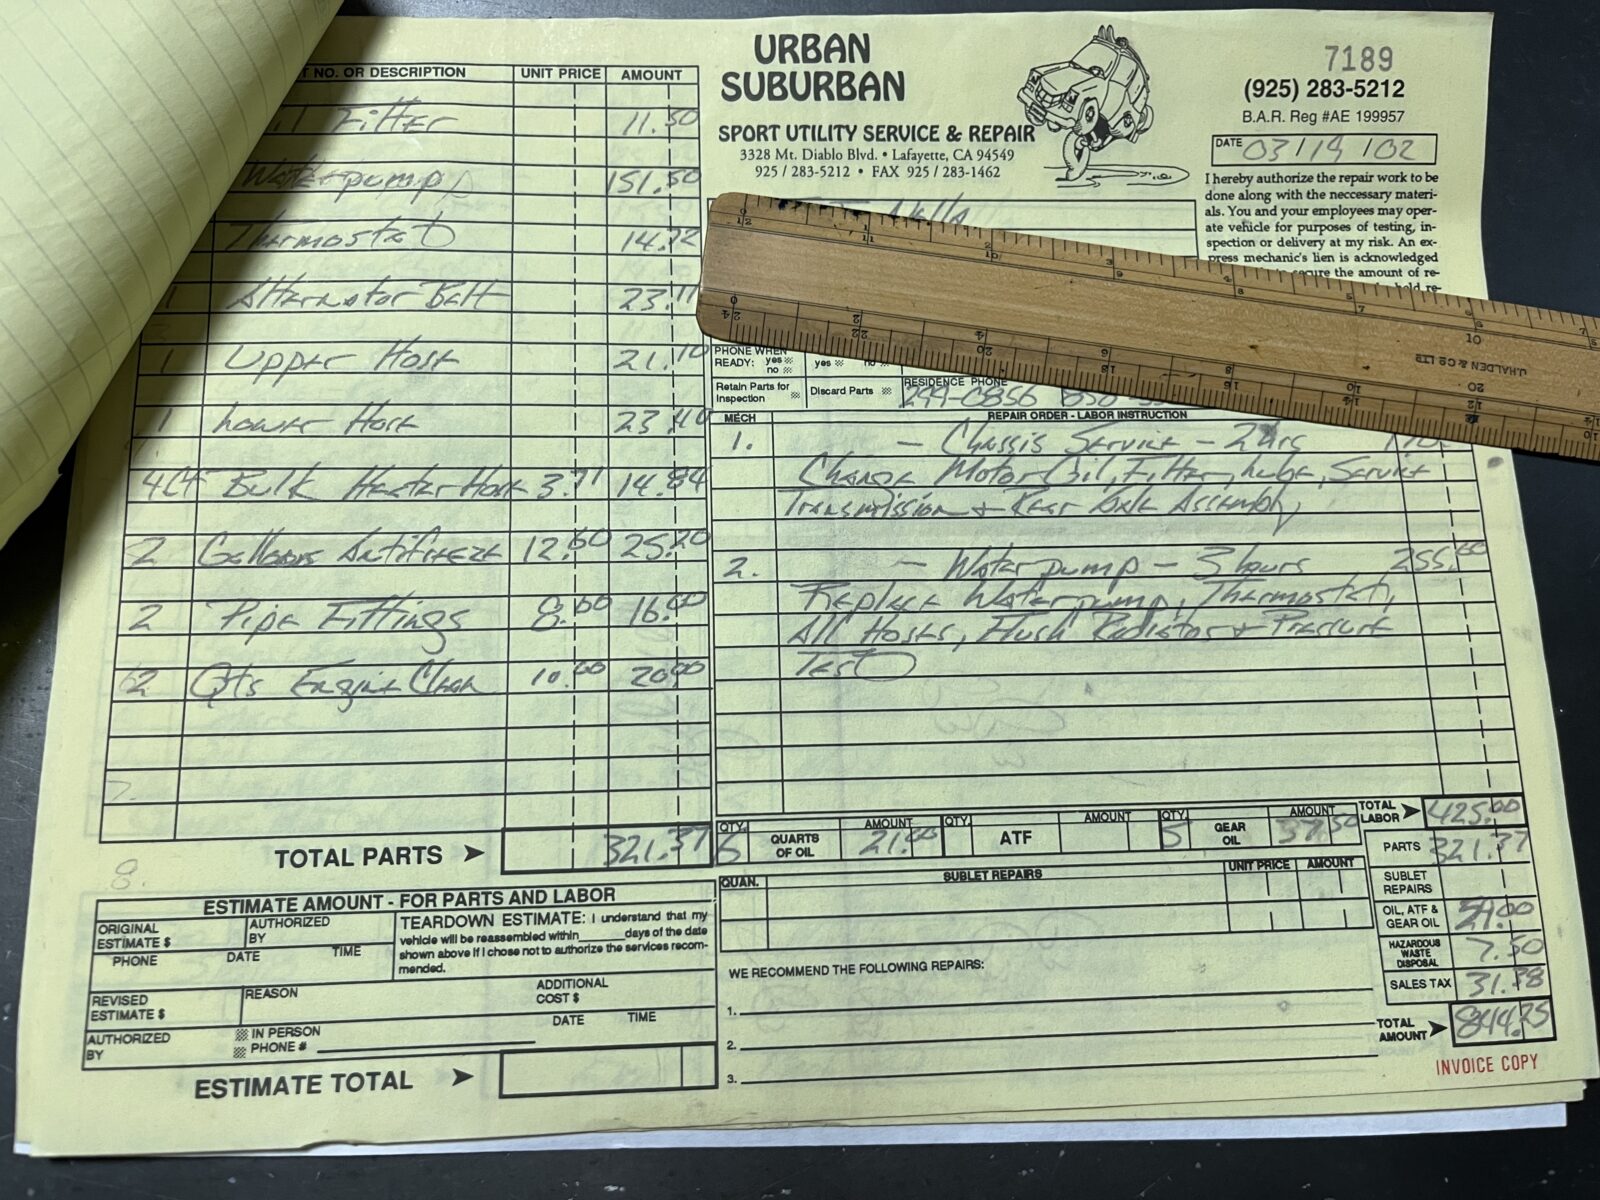 URBAN
SUBURBAN
SPORT UTILITY SERVICE & REPAIR
3328 Mt. Diablo Blvd. • Lafayette, CA 94549
925 / 283-5212 • FAX 925 / 283-1462
7189
(925) 283-5212
B.A.R. Reg #AE 199957
DATE 03/19/02
I hereby authorize the repair work to be
done along with the neccessary materi-
als. You and your employees may oper-
ate vehicle for purposes of testing, in-
spection or delivery at my risk. An ex-
press mechanic's lien is acknowledged
secure the amount of re-
NO. OR DESCRIPTION UNIT PRICE AMOUNT
Filter 11.50
Waterpump 151.50
Thermostat 14.72
1 Alternator Belt 23.11
1 Upper Hose 21.10
1 Lower Hose 23.40
4 Bulk Heater Hose 3.71 14.84
2 Gallons Antifreeze 12.60 25.20
2 Pipe Fittings 8.00 16.00
2 Qts Engine Clean 10.00 20.00
TOTAL PARTS 321.37
PHONE WHEN
READY: yes no
yes no
Retain Parts for
Inspection
Discard Parts
RESIDENCE PHONE
299-0856
MECH REPAIR ORDER - LABOR INSTRUCTION
1. - Chassis Service - 2 hrs
Change Motor Oil, Filter, Lube, Service
Transmission + Rear Axle Assembly
2. - Waterpump - 3 hours 255.00
Replace Waterpump, Thermostat,
All Hoses, Flush Radiator + Pressure
Test
QTY. 6 QUARTS OF OIL AMOUNT 21.00 QTY. ATF AMOUNT QTY. 5 GEAR OIL AMOUNT 37.50
TOTAL LABOR 425.00
PARTS 321.37
SUBLET REPAIRS
OIL, ATF & GEAR OIL
HAZARDOUS WASTE DISPOSAL 7.50
SALES TAX 31.38
TOTAL AMOUNT 844.25
INVOICE COPY
QUAN. SUBLET REPAIRS UNIT PRICE AMOUNT
WE RECOMMEND THE FOLLOWING REPAIRS:
1.
2.
3.
8.
ESTIMATE AMOUNT - FOR PARTS AND LABOR
ORIGINAL ESTIMATE $ AUTHORIZED BY
PHONE DATE TIME
TEARDOWN ESTIMATE: I understand that my
vehicle will be reassembled within______days of the date
shown above if I chose not to authorize the services recom-
mended.
REVISED ESTIMATE $ REASON ADDITIONAL COST $
DATE TIME
AUTHORIZED BY IN PERSON
PHONE #
ESTIMATE TOTAL
J.HALDEN & CO LTD